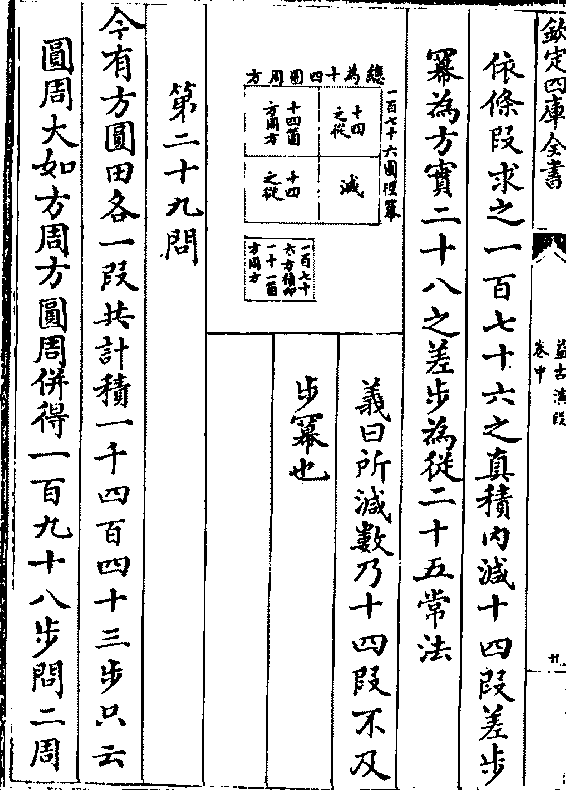 欽定四庫全書
益古演段
卷中
依條段求之一百七十六之真積内減十四段差步
冪為方實二十八之差步為從二十五常法
總為十四圓周方
一百七十六圓徑冪
十四之從
減
十四箇方周方
十四之從
一百七十六方積即一十一箇方周方
義曰所減數乃十四段不及
步冪也
第二十九問
今有方圓田各一段共計積一千四百四十三步只云
圓周大如方周方圓周併得一百九十八步問二周